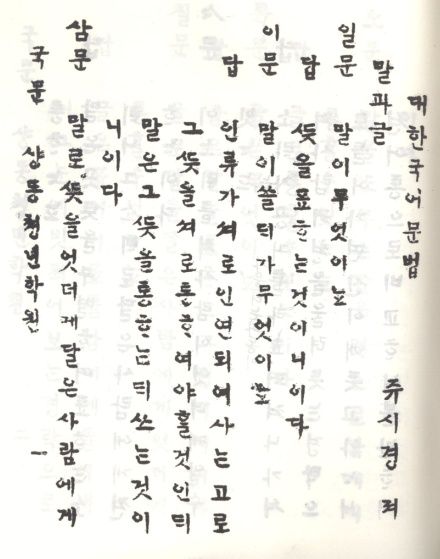 대한국어문법
말과글 쥬시경 저
일문 말이무엇이뇨
답 ᄯᅳᆺ을표ᄒᆞ는것이니이다
이문 말이쓸ᄃᆡ가무엇이뇨
답 인류가셔로인연되여사는고로
그 ᄯᅳᆺ을셔로통ᄒᆞ여야ᄒᆞᆯ것인ᄃᆡ
말은그 ᄯᅳᆺ을통ᄒᆞ는ᄃᆡ쓰는것이
니이다
삼문 말로 ᄯᅳᆺ을엇더케달은사람에게
국문 샹동청년학원 一